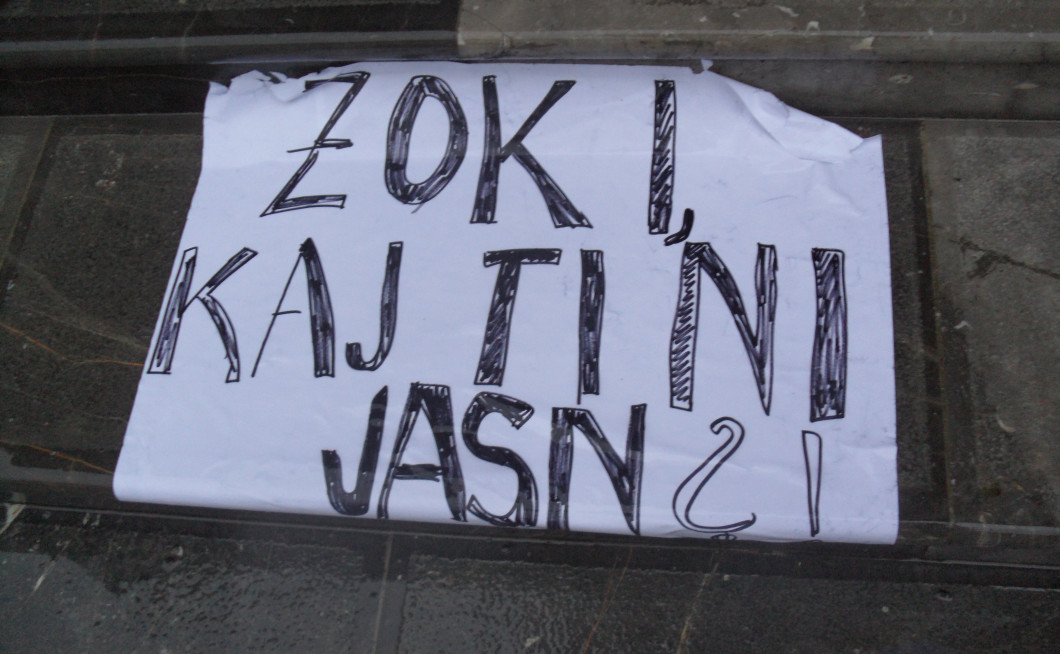 ZOKI,
KAJ TI NI
JASN?!